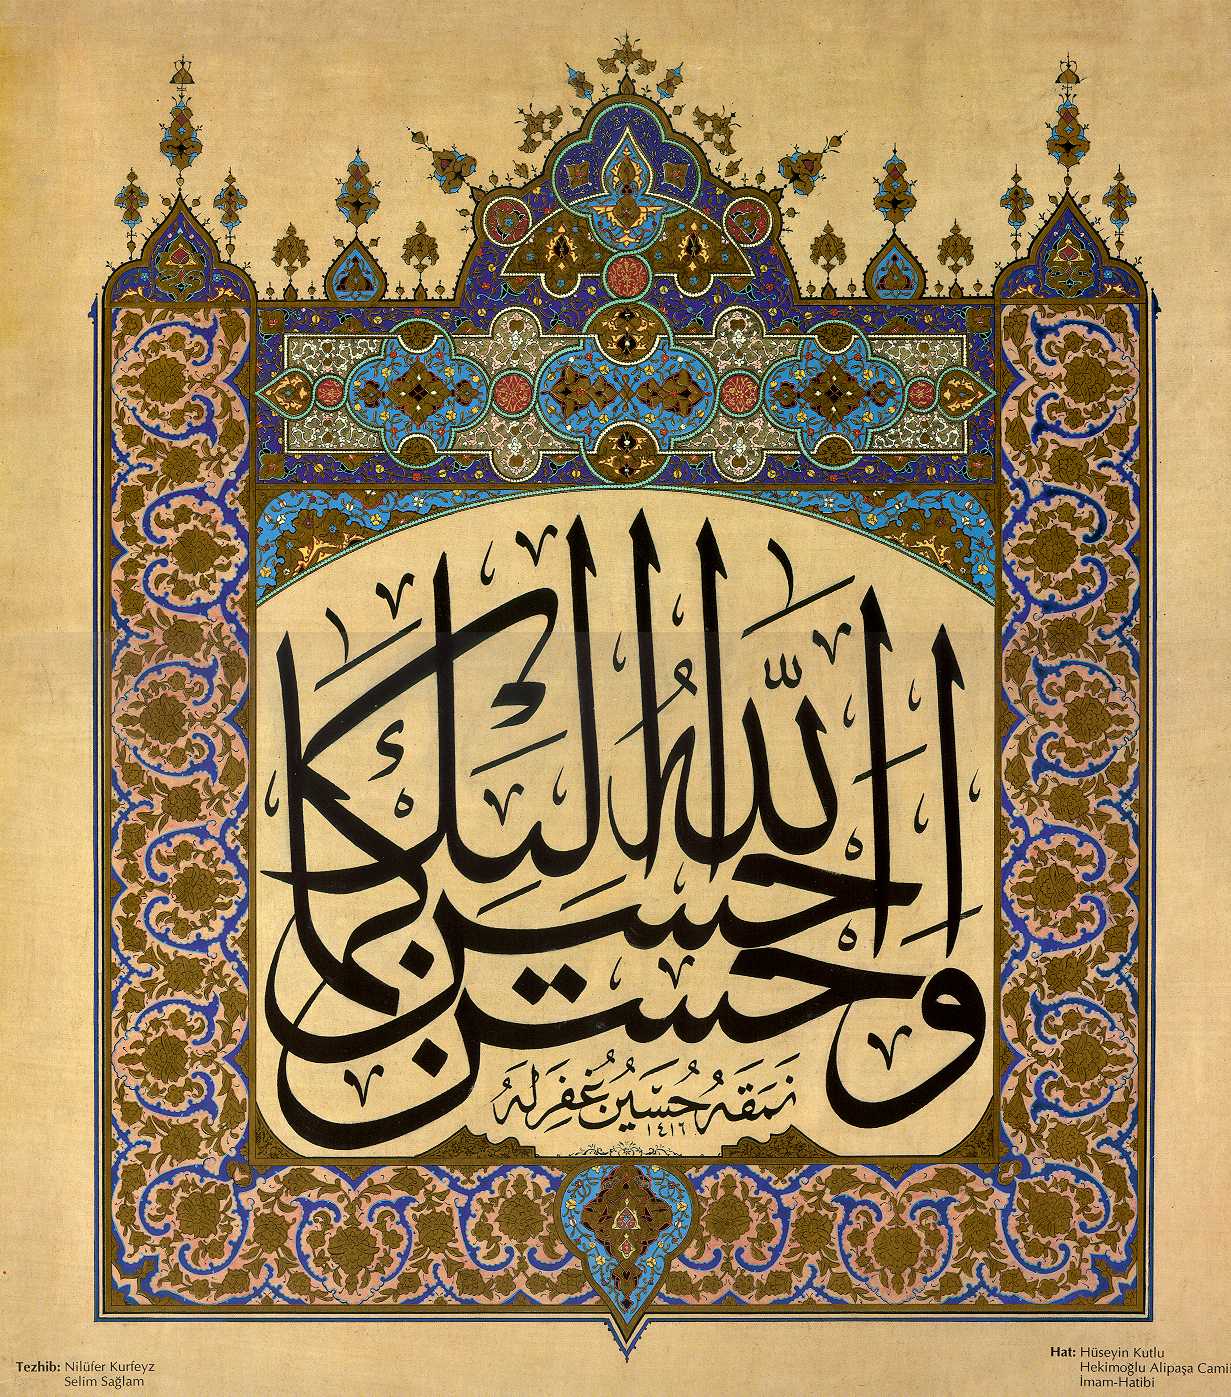 واحسن كما احسن الله اليك
نمقه حسين غفر له
١٤١٦
Tezhib: Nilüfer Kurfeyz
Selim Sağlam
Hat: Hüseyin Kutlu
Hekimoğlu Alipaşa Camii
İmam-Hatibi